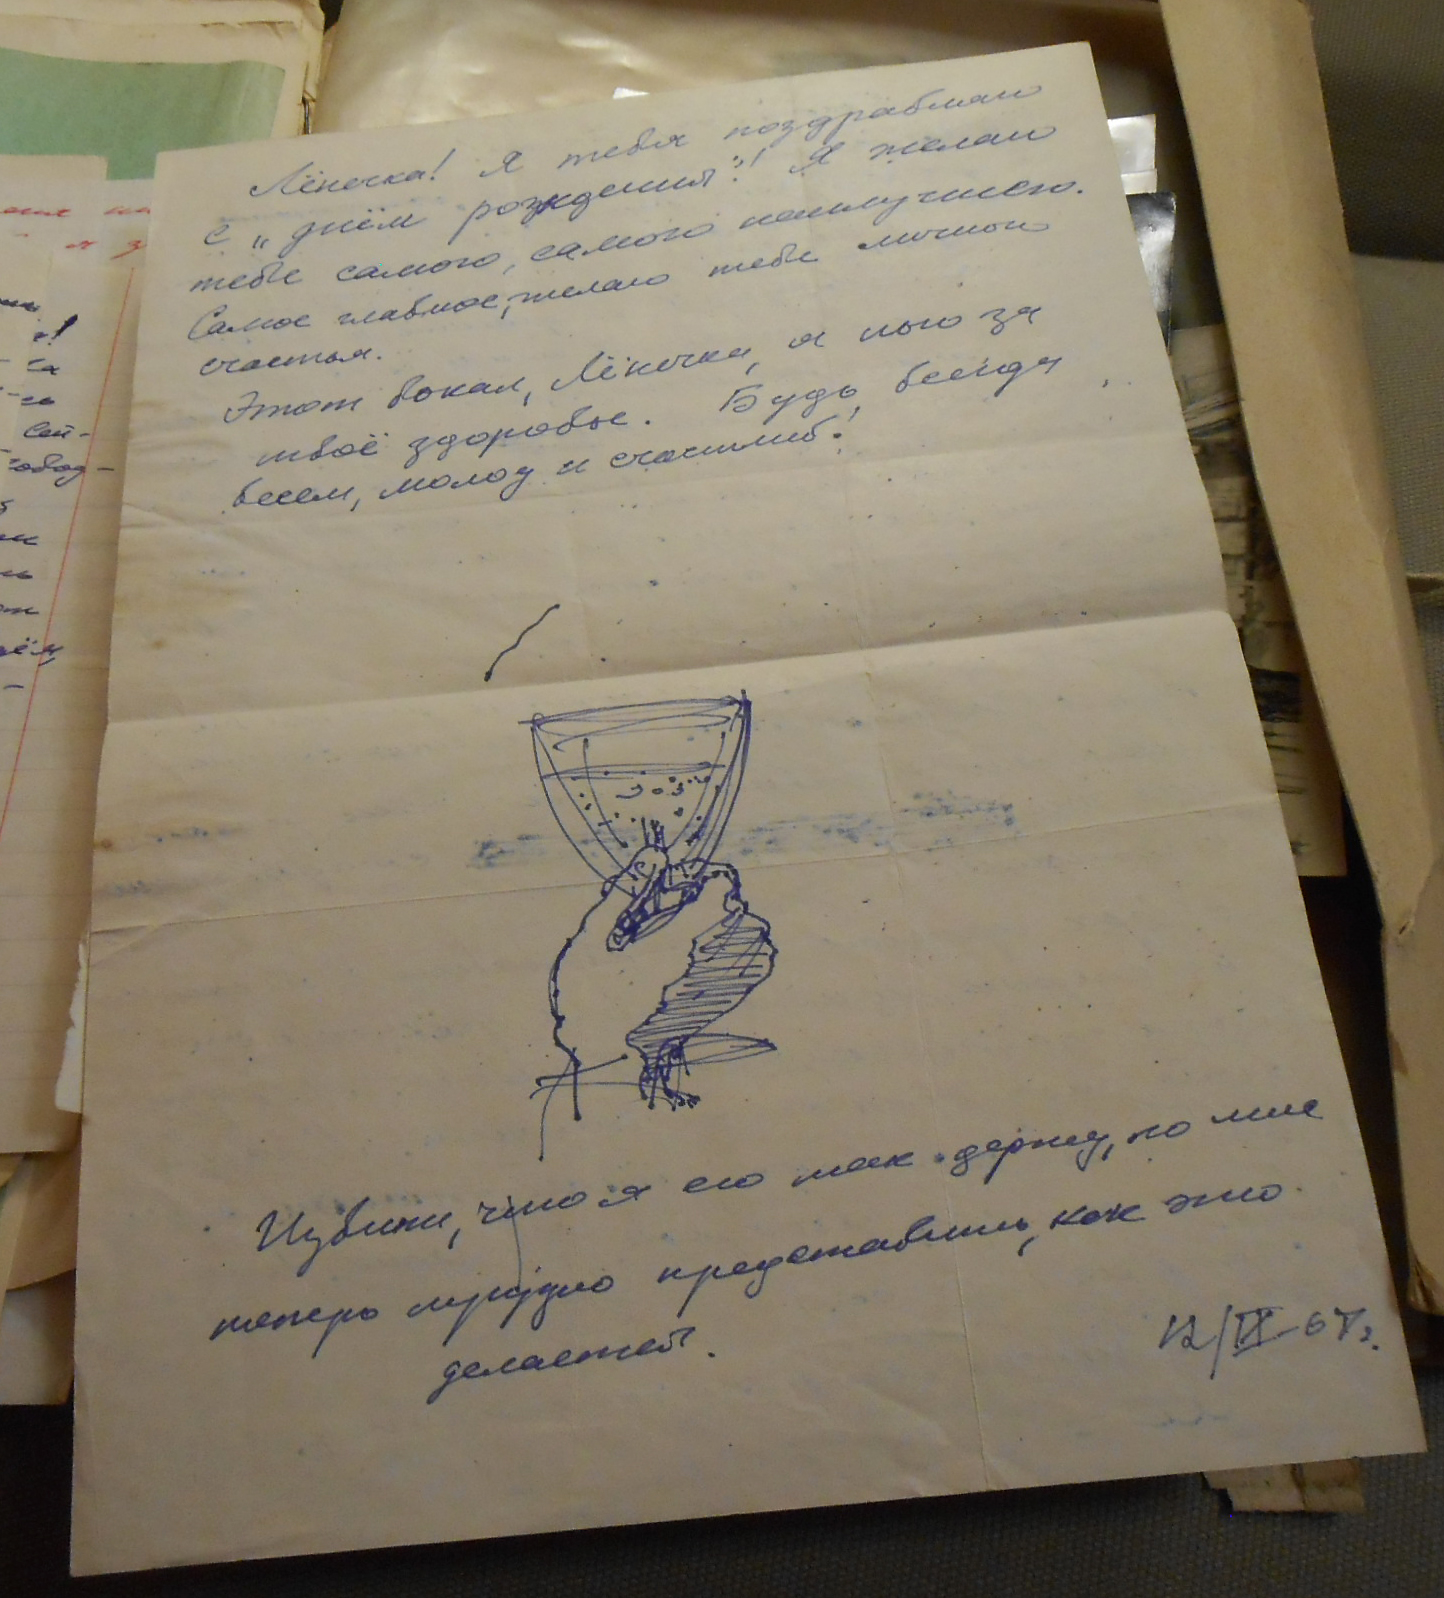 Лёночка! Я тебя поздравляю
с „днём рождения"! Я желаю
тебе самого, самого наилучшего.
Самое главное, желаю тебе личного
счастья.
Этот бокал, Лёночка, я пью за
твоё здоровье. Будь всегда
весел, молод и счастлив!
Извини, что я его так держу, но мне
теперь трудно представить, как это
делается.
12/IX-67г.